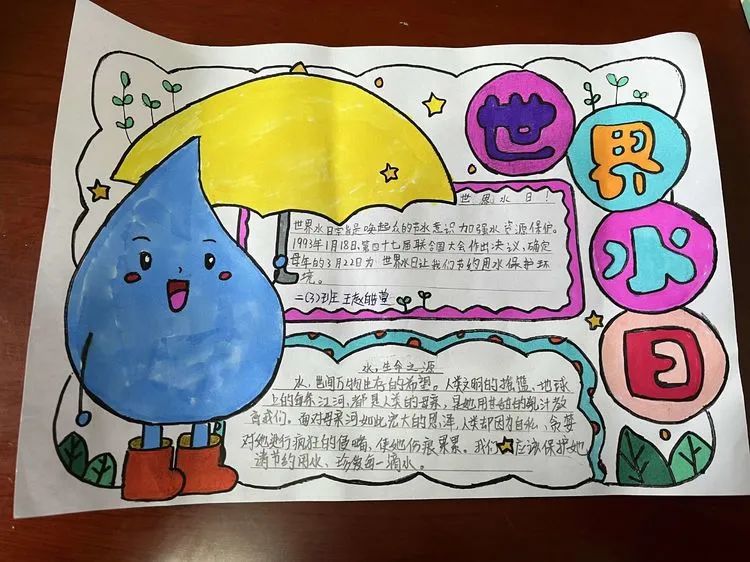 世界水日
世界水日!
世界水日是唤起的节水意识加强水资源保护。
1993年1月18日,第四十七届联合国大会作出决议,确定
每年的3月22日为世界水日让我们节约用水保护环
境。
二(3)班 王赵萱
水,生命之源
水,世间万物生存的希望。人类文明的摇篮,地球
上的条江河,都是人类的母亲,是她用甘甜的乳汁教
育我们。面对母亲河如此宏大的恩泽,人类却因为自私、需要
对她进行疯狂的侵略,使她伤痕累累。我们应该保护她
请节约用水、珍惜每一滴水。